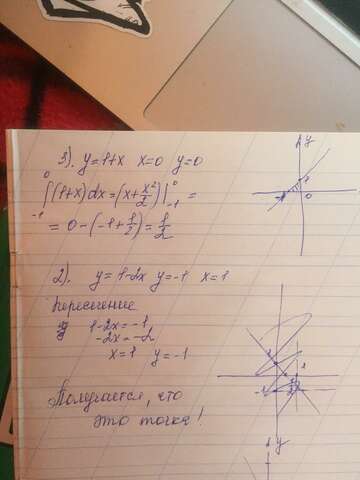 3). y=1+x x=0 y=0
∫₋₁⁰(1+x)dx=(x+x²/2)|₋₁⁰=
=0-(-1+1/2)=1/2
y
-1 0
2). y=1-2x y=-1 x=1
Пересечение
1-2x=-1
-2x=-2
x=1 y=-1
Получается, что
это точка!
-1
y